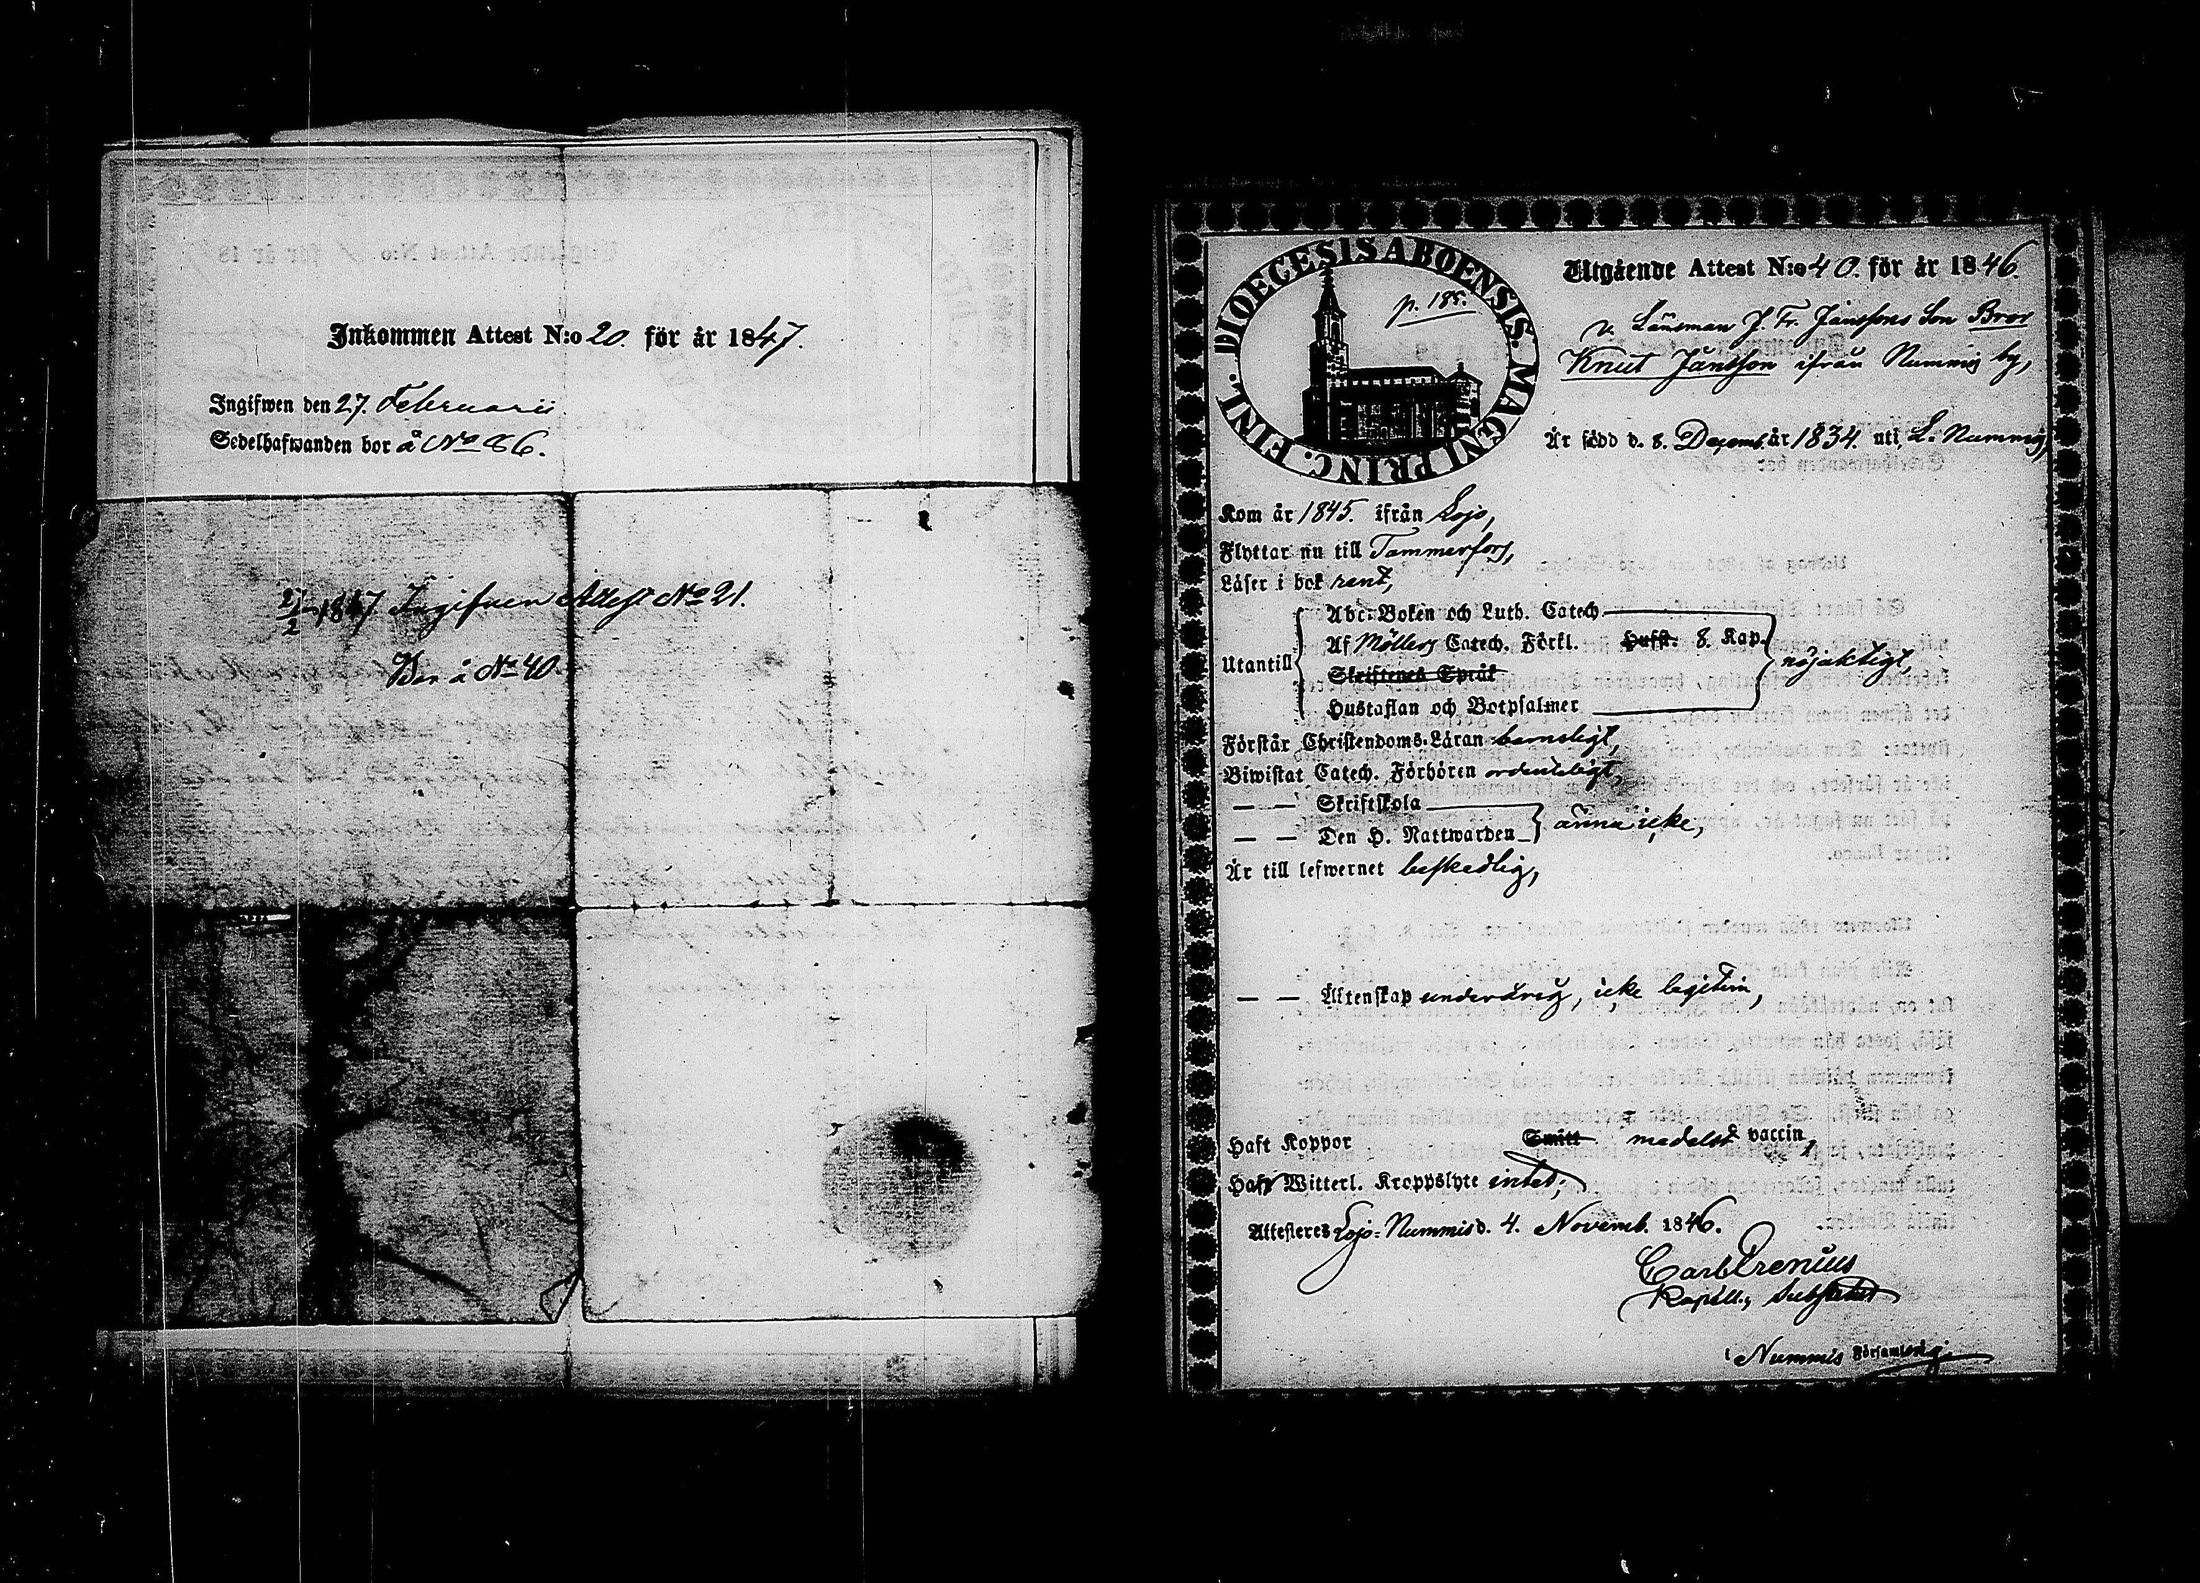 Inkommen Attest N:o 20 för år 1847.
Ingifwen den 27. Februarii
Sedelhafwanden bor å No 86.
27/2 1847 Ingifven Attest No 21.
Bor å No 40
DIOECESIS ABOENSIS. MAGNI PRINC. FINL.
p. 185.
Utgående Attest N:o 40. för år 1846.
v. Länsman J. Fr. Janssons Son Bror
Knut Jansson ifrån Nummis by,
Är född d. 8. Decemb. år 1834. uti L. Nummis,
Kom år 1845. ifrån Lojo,
Flyttar nu till Tammerfors,
Läser i bok rent,
Utantill
Abc-Boken och Luth. Catech.
Af Möllers Catech. Förkl. Hufst. 8. Kap.
Skriftenes Språk
Hustaflan och Botpsalmer
nöjaktigt,
Förstår Christendoms-Läran barnsligt,
Biwistat Catech. Förhören ordenteligt,
— — Skriftskola
— — Den H. Nattwarden
ännu icke,
Är till lefwernet beskedlig,
— — Äktenskap underårig, icke legitim,
Haft Koppor Smitt medelst vaccin,
Haft Witterl. Kroppslyte intet;
Attesteres Lojo-Nummis d. 4. Novemb. 1846.
Carl Prenius
Kapell.
i Nummis Församling.